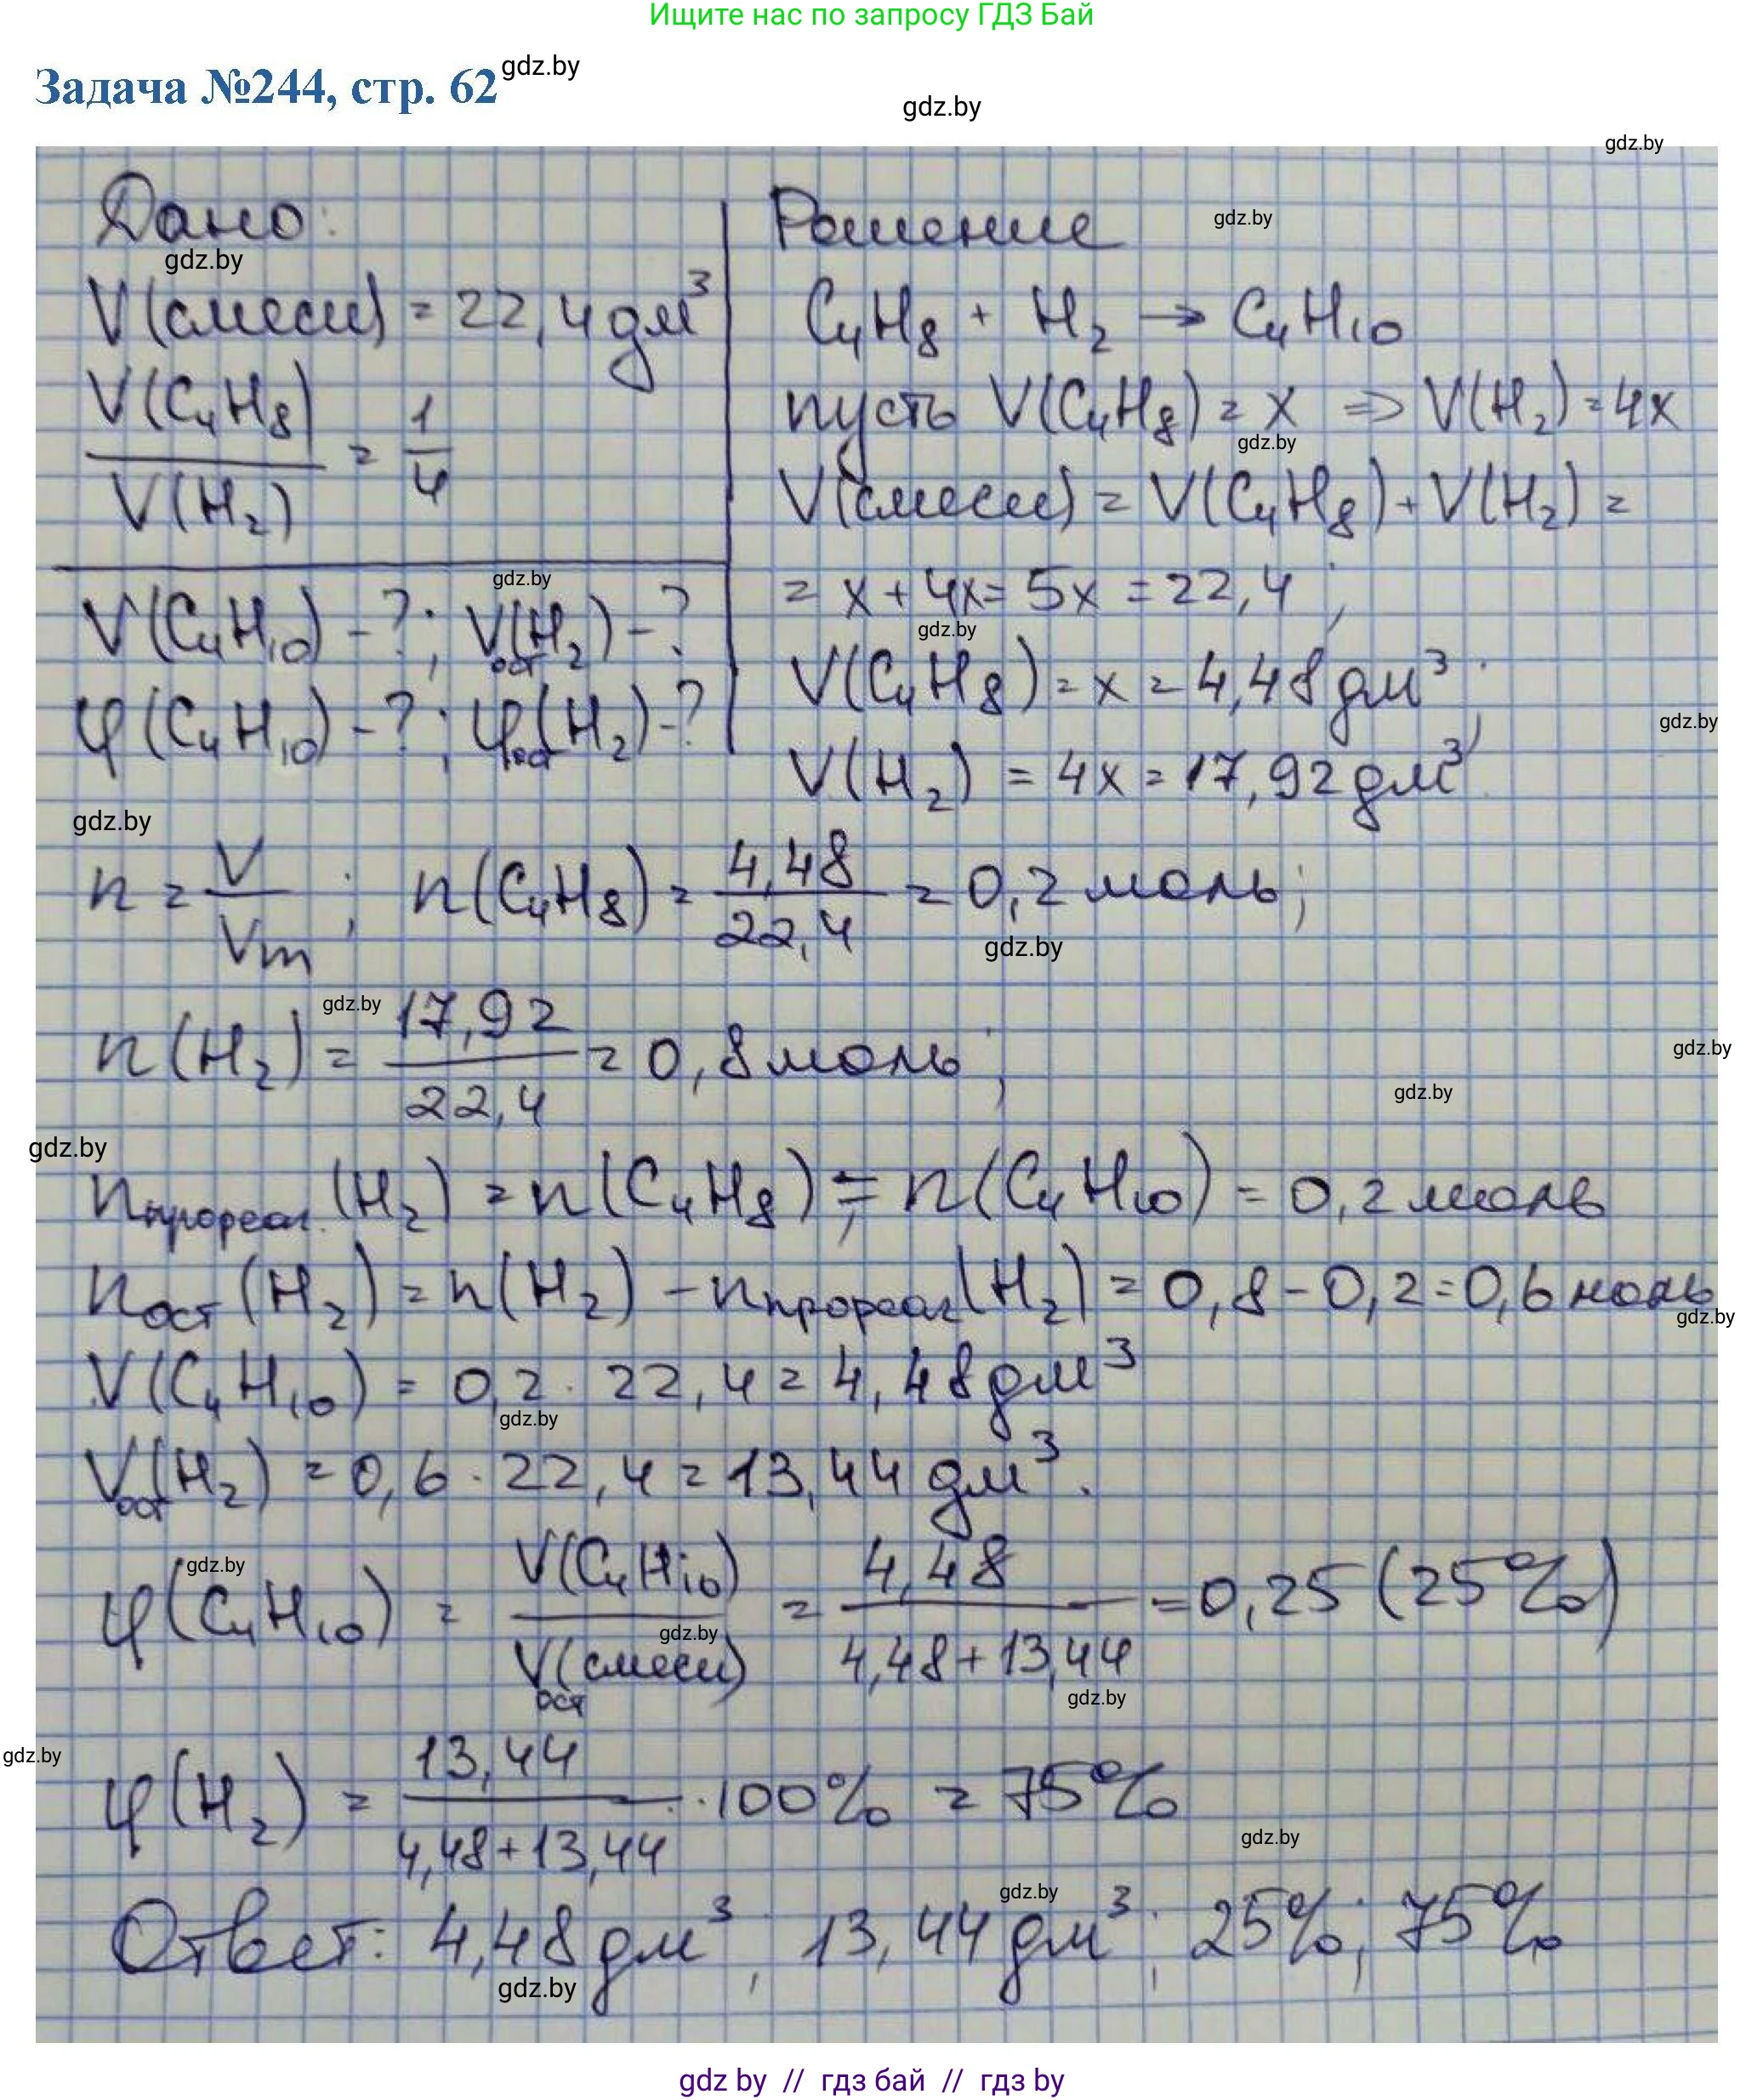 Ищите нас по запросу ГДЗ Бай
Задача №244, стр. 62
gdz.by
gdz.by
gdz.by
Дано:
gdz.by
V(смеси) = 22,4 дм³
V(C₄H₈) / V(H₂) = 1/4
gdz.by
V(C₄H₁₀) - ?; Vост(H₂) - ?
φ(C₄H₁₀) - ?; φост(H₂) - ?
Решение
gdz.by
C₄H₈ + H₂ → C₄H₁₀
пусть V(C₄H₈) = x ⇒ V(H₂) = 4x
gdz.by
V(смеси) = V(C₄H₈) + V(H₂) =
= x + 4x = 5x = 22,4;
gdz.by
V(C₄H₈) = x = 4,48 дм³;
gdz.by
V(H₂) = 4x = 17,92 дм³
gdz.by
n = V/Vm; n(C₄H₈) = 4,48/22,4 = 0,2 моль;
gdz.by
gdz.by
n(H₂) = 17,92/22,4 = 0,8 моль;
gdz.by
gdz.by
gdz.by
nпрореаг.(H₂) = n(C₄H₈) = n(C₄H₁₀) = 0,2 моль
nост(H₂) = n(H₂) - nпрореаг(H₂) = 0,8 - 0,2 = 0,6 моль
gdz.by
V(C₄H₁₀) = 0,2 · 22,4 = 4,48 дм³
gdz.by
Vост(H₂) = 0,6 · 22,4 = 13,44 дм³.
gdz.by
φ(C₄H₁₀) = V(C₄H₁₀)/Vост(смеси) = 4,48/(4,48+13,44) = 0,25 (25%)
gdz.by
gdz.by
gdz.by
φ(H₂) = 13,44/(4,48+13,44) · 100% = 75%
gdz.by
gdz.by
Ответ: 4,48 дм³; 13,44 дм³; 25%; 75%
gdz.by
gdz by // гдз бай // гдз by